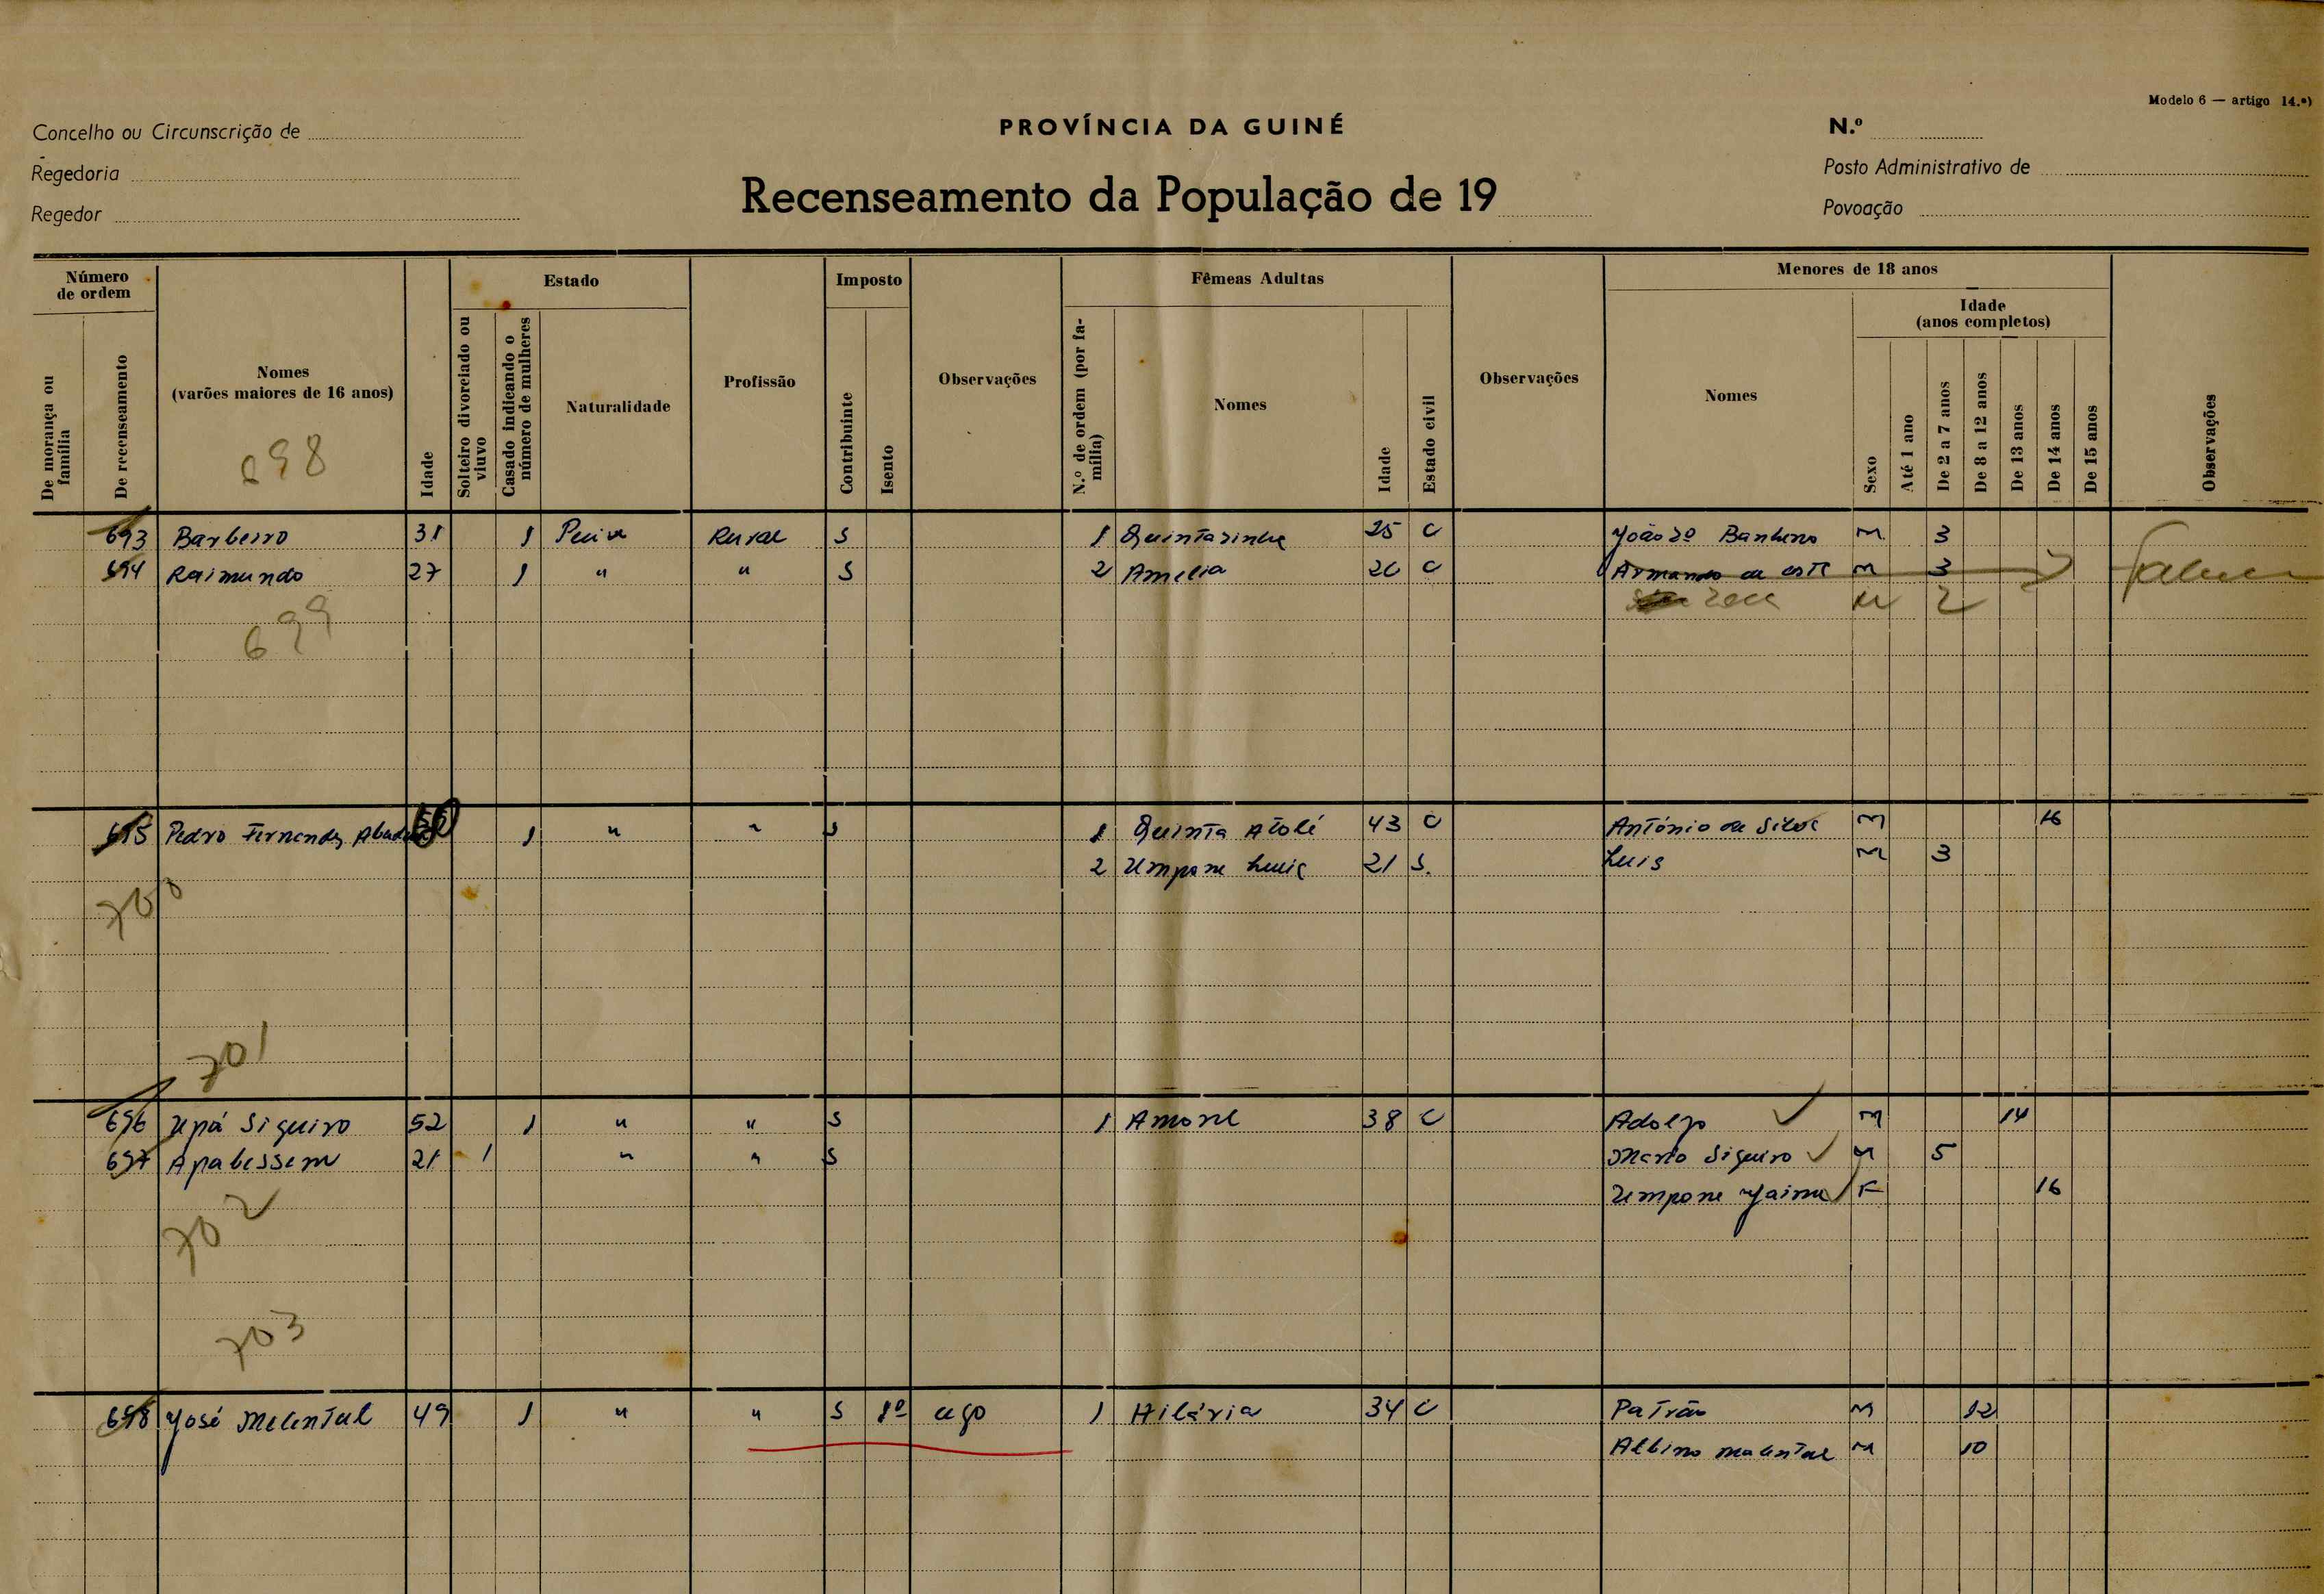 Modelo 6 — artigo 14.º)
Concelho ou Circunscrição de
PROVÍNCIA DA GUINÉ
N.º
Regedoria
Recenseamento da População de 19
Posto Administrativo de
Regedor
Povoação
Número de ordem
De morança ou família
De recenseamento
Nomes
(varões maiores de 16 anos)
698
Idade
Estado
Solteiro divorciado ou viuvo
Casado indicando o número de mulheres
Naturalidade
Profissão
Imposto
Contribuinte
Isento
Observações
Fêmeas Adultas
N.º de ordem (por família)
Nomes
Idade
Estado civil
Observações
Menores de 18 anos
Nomes
Sexo
Idade
(anos completos)
Até 1 ano
De 2 a 7 anos
De 8 a 12 anos
De 13 anos
De 14 anos
De 15 anos
Observações
693 Barbeiro 31 1 Rural S 1 Quintazinha 25 C M 3
694 Raimundo 27 1 " " S 2 Amelia 26 C Armando da M 3
M 2
699
695 Pedro Fernandes 1 " " S 1 Quinta Atolé 43 C António da Silva M 16
2 Umpane Luis 21 S. Luis M 3
700
701
696 Upá Siqueiro 52 1 " " S 1 Amone 38 C Adolfo M 14
697 Apabessem 21 1 " " S Mario Siqueiro M 5
Umpane Jaime F 16
702
703
698 José Malental 49 1 " " S 1º 1 Hilária 34 C Patrão M 12
Albino Malental M 10